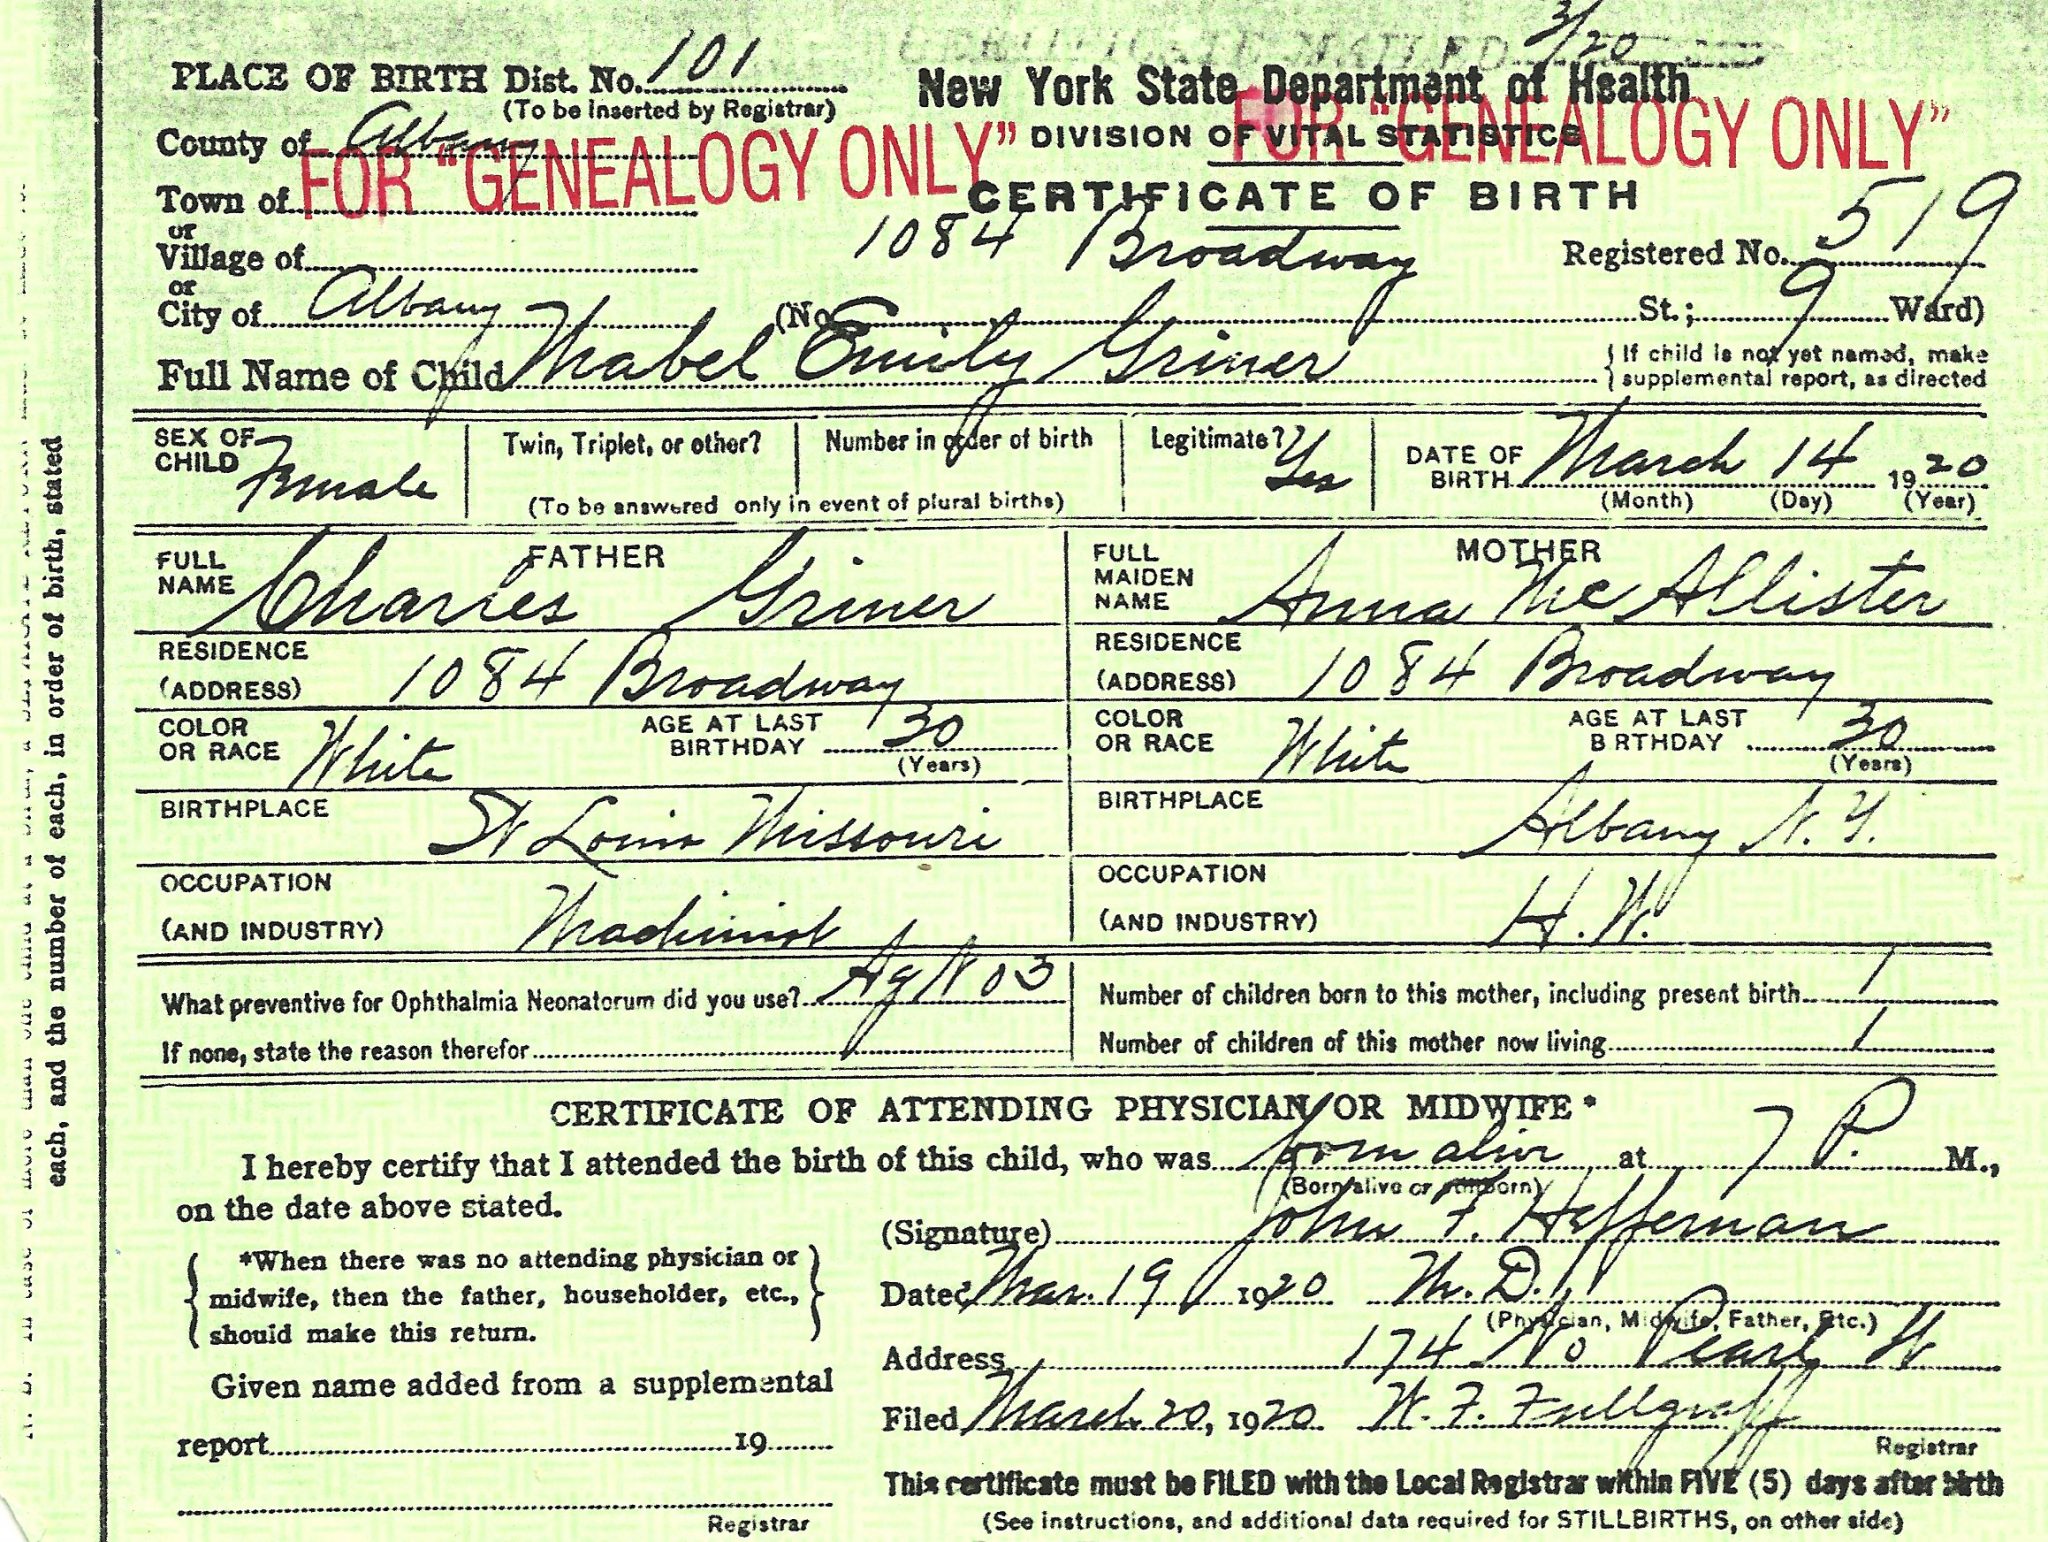 CERTIFICATE MAILED 3/20
PLACE OF BIRTH Dist. No. 101
(To be inserted by Registrar)
New York State Department of Health
County of Albany
FOR "GENEALOGY ONLY"
DIVISION OF VITAL STATISTICS
FOR "GENEALOGY ONLY"
Town of
CERTIFICATE OF BIRTH
or
Village of
1084 Broadway
Registered No. 519
or
City of Albany (No. St.; 9 Ward)
Full Name of Child Mabel Emily Griner
{ If child is not yet named, make
supplemental report, as directed
SEX OF
CHILD Female
Twin, Triplet, or other?
Number in order of birth
(To be answered only in event of plural births)
Legitimate? Yes
DATE OF
BIRTH March 14 1920
(Month) (Day) (Year)
FATHER
FULL
NAME Charles Griner
MOTHER
FULL
MAIDEN
NAME Anna McAllister
RESIDENCE
(ADDRESS) 1084 Broadway
RESIDENCE
(ADDRESS) 1084 Broadway
COLOR
OR RACE White
AGE AT LAST
BIRTHDAY 30
(Years)
COLOR
OR RACE White
AGE AT LAST
BIRTHDAY 30
(Years)
BIRTHPLACE St Louis Missouri
BIRTHPLACE Albany N.Y.
OCCUPATION
(AND INDUSTRY) Machinist
OCCUPATION
(AND INDUSTRY) H.W.
What preventive for Ophthalmia Neonatorum did you use? AgNO3
If none, state the reason therefor
Number of children born to this mother, including present birth 1
Number of children of this mother now living 1
CERTIFICATE OF ATTENDING PHYSICIAN OR MIDWIFE*
I hereby certify that I attended the birth of this child, who was born alive at 7 P. M.,
(Born alive or stillborn)
on the date above stated.
(Signature) John F. Heffernan
*When there was no attending physician or
midwife, then the father, householder, etc.,
should make this return.
Dated Mar. 19 1920 M.D.
(Physician, Midwife, Father, Etc.)
Address 174 No Pearl St
Given name added from a supplemental
report 19
Filed March 20, 1920 W. F. Fullgraff
Registrar
Registrar
This certificate must be FILED with the Local Registrar within FIVE (5) days after birth
(See instructions, and additional data required for STILLBIRTHS, on other side)
each, and the number of each, in order of birth, stated